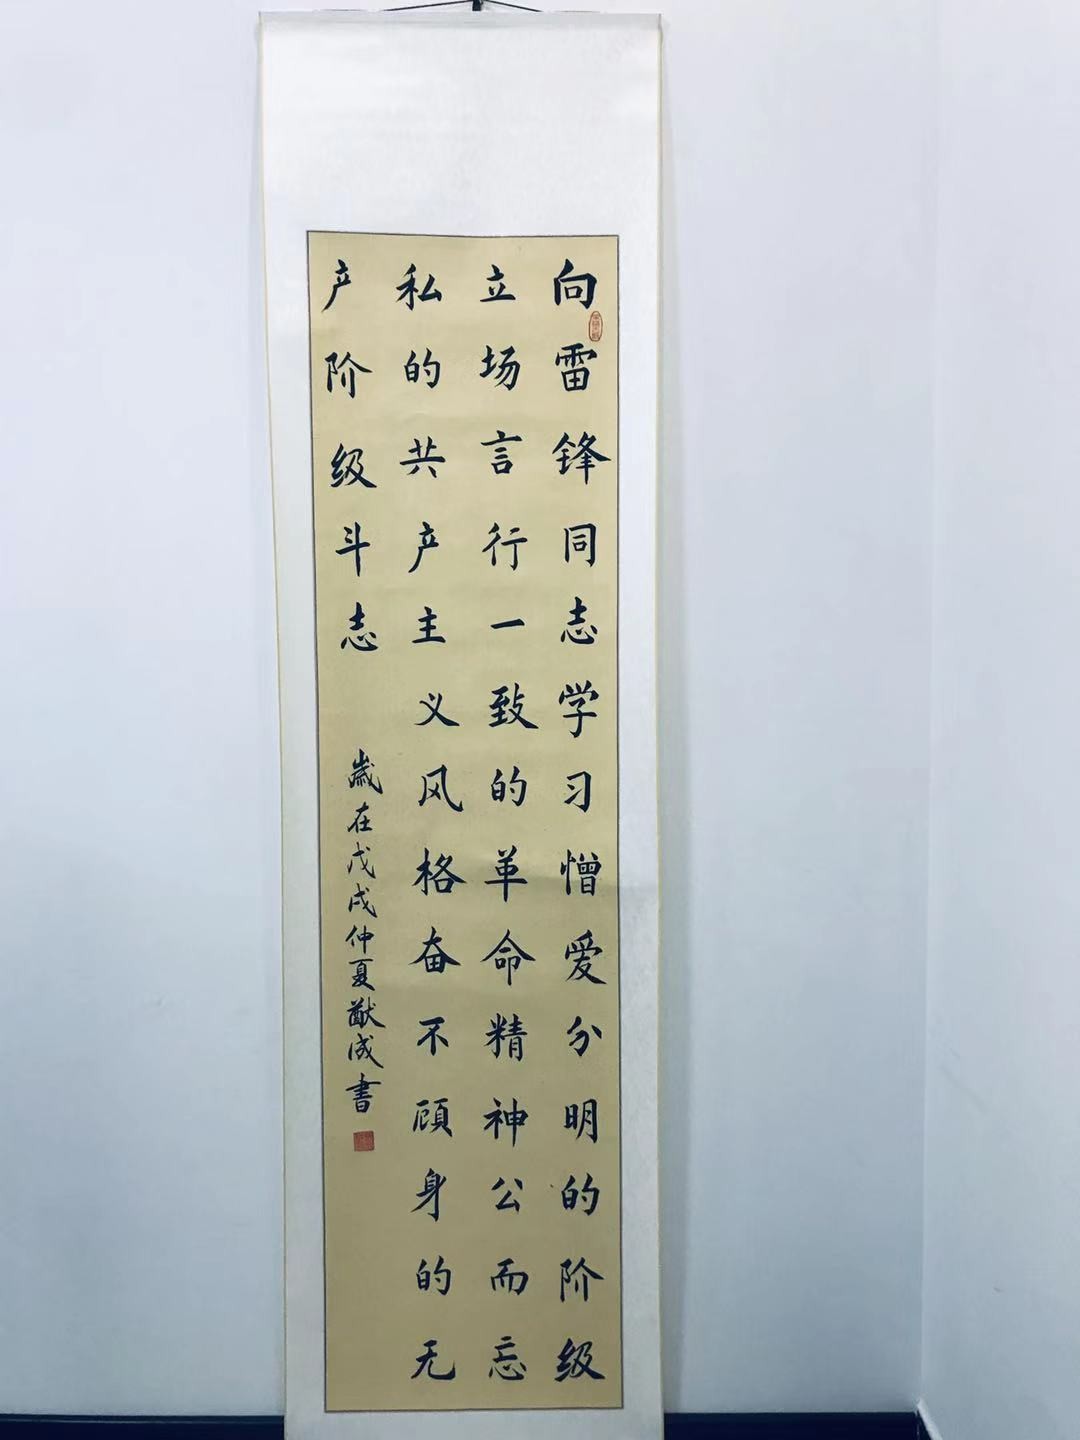 向雷锋同志学习憎爱分明的阶级
立场言行一致的革命精神公而忘
私的共产主义风格奋不顾身的无
产阶级斗志
岁在戊戌仲夏猷成书